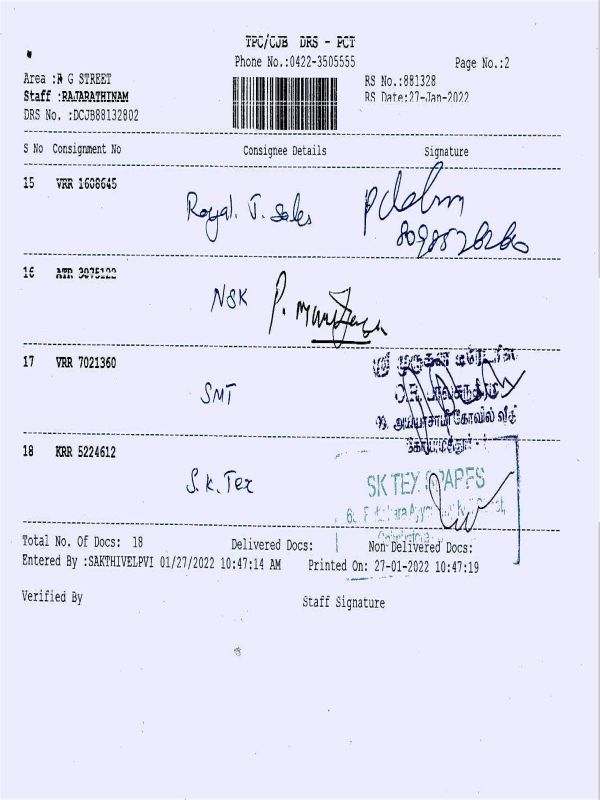 TPC/CJB DRS - PCT
Phone No.:0422-3505555 Page No.:2
Area :R G STREET RS No.:881328
Staff :RAJARATHINAM RS Date:27-Jan-2022
DRS No. :DCJB88132802
S No Consignment No Consignee Details Signature
15 VRR 1608645
Royal. T. Sales
16 ATR 3075122
NSK
17 VRR 7021360
ஸ்ரீ முருகன்
SMT
அய்யாசாமி கோவில் வீதி
18 KRR 5224612
S.K. Tex SK TEX
Total No. Of Docs: 18 Delivered Docs: Non-Delivered Docs:
Entered By :SAKTHIVELPVI 01/27/2022 10:47:14 AM Printed On: 27-01-2022 10:47:19
Verified By Staff Signature